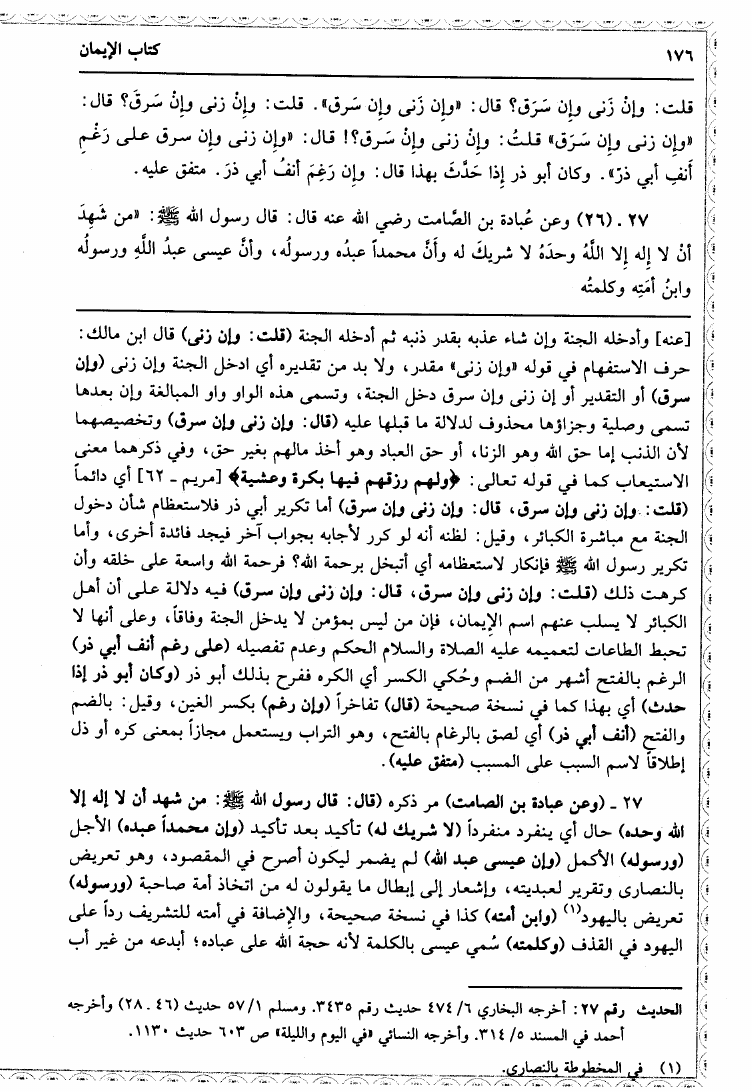 ١٧٦ كتاب الإيمان
قلت: وإنْ زَنى وإن سَرَق؟ قال: «وإن زَنى وإن سَرق». قلت: وإنْ زنى وإنْ سَرقَ؟ قال:
«وإن زنى وإن سَرَق» قلتُ: وإنْ زنى وإنْ سَرق؟! قال: «وإن زنى وإن سرق على رَغْمِ
أَنفِ أبي ذرّ». وكان أبو ذر إذا حَدَّثَ بهذا قال: وإن رَغِمَ أنفُ أبي ذرَ. متفق عليه.
٢٧ ـ (٢٦) وعن عُبادة بن الصَّامت رضي الله عنه قال: قال رسول الله ﷺ: «من شَهِدَ
أنْ لا إِله إِلا اللَّهُ وحدَهُ لا شريكَ له وأَنَّ محمداً عبدُه ورسولُه، وأنَّ عيسى عبدُ اللَّهِ ورسولُه
وابنُ أمَتِه وكلمتُه
[عنه] وأدخله الجنة وإن شاء عذبه بقدر ذنبه ثم أدخله الجنة (قلت: وإن زنى) قال ابن مالك:
حرف الاستفهام في قوله «وإن زنى» مقدر، ولا بد من تقديره أي ادخل الجنة وإن زنى (وإن
سرق) أو التقدير أو إن زنى وإن سرق دخل الجنة، وتسمى هذه الواو واو المبالغة وإن بعدها
تسمى وصلية وجزاؤها محذوف لدلالة ما قبلها عليه (قال: وإن زنى وإن سرق) وتخصيصهما
لأن الذنب إما حق الله وهو الزنا، أو حق العباد وهو أخذ مالهم بغير حق، وفي ذكرهما معنى
الاستيعاب كما في قوله تعالى: ﴿ولهم رزقهم فيها بكرة وعشية﴾ [مريم ـ ٦٢] أي دائماً
(قلت: وإن زنى وإن سرق، قال: وإن زنى وإن سرق) أما تكرير أبي ذر فلاستعظام شأن دخول
الجنة مع مباشرة الكبائر، وقيل: لظنه أنه لو كرر لأجابه بجواب آخر فيجد فائدة أخرى، وأما
تكرير رسول الله ﷺ فإنكار لاستعظامه أي أتبخل برحمة الله؟ فرحمة الله واسعة على خلقه وأن
كرهت ذلك (قلت: وإن زنى وإن سرق، قال: وإن زنى وإن سرق) فيه دلالة على أن أهل
الكبائر لا يسلب عنهم اسم الإيمان، فإن من ليس بمؤمن لا يدخل الجنة وفاقاً، وعلى أنها لا
تحبط الطاعات لتعميمه عليه الصلاة والسلام الحكم وعدم تفصيله (على رغم أنف أبي ذر)
الرغم بالفتح أشهر من الضم وحُكي الكسر أي الكره ففرح بذلك أبو ذر (وكان أبو ذر إذا
حدث) أي بهذا كما في نسخة صحيحة (قال) تفاخراً (وإن رغم) بكسر الغين، وقيل: بالضم
والفتح (أنف أبي ذر) أي لصق بالرغام بالفتح، وهو التراب ويستعمل مجازاً بمعنى كره أو ذل
إطلاقاً لاسم السبب على المسبب (متفق عليه).
٢٧ ـ (وعن عبادة بن الصامت) مر ذكره (قال: قال رسول الله ﷺ: من شهد أن لا إله إلا
الله وحده) حال أي ينفرد منفرداً (لا شريك له) تأكيد بعد تأكيد (وإن محمداً عبده) الأجل
(ورسوله) الأكمل (وإن عيسى عبد الله) لم يضمر ليكون أصرح في المقصود، وهو تعريض
بالنصارى وتقرير لعبديته، وإشعار إلى إبطال ما يقولون له من اتخاذ أمة صاحبة (ورسوله)
تعريض باليهود(١) (وابن أمته) كذا في نسخة صحيحة، والإضافة في أمته للتشريف رداً على
اليهود في القذف (وكلمته) سُمي عيسى بالكلمة لأنه حجة الله على عباده؛ أبدعه من غير أب
الحديث رقم ٢٧: أخرجه البخاري ٦/ ٤٧٤ حديث رقم ٣٤٣٥. ومسلم ١/ ٥٧ حديث (٤٦ ـ ٢٨) وأخرجه
أحمد في المسند ٥/ ٣١٤. وأخرجه النسائي «في اليوم والليلة» ص ٦٠٣ حديث ١١٣٠.
(١) في المخطوطة بالنصارى.